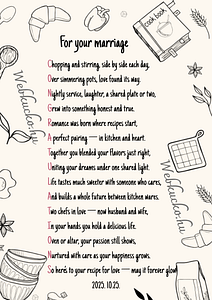 cook book
For your marriage
Chopping and stirring, side by side each day,
Over simmering pots, love found its way.
Nightly service, laughter, a shared plate or two,
Grew into something honest and true.
Romance was born where recipes start,
A perfect pairing — in kitchen and heart.
Together you blended your flavors just right,
Uniting your dreams under one shared light.
Life tastes much sweeter with someone who cares,
And builds a whole future between kitchen wares.
Two chefs in love — now husband and wife,
In your hands you hold a delicious life.
Oven or altar, your passion still shows,
Nurtured with care as your happiness grows,
So here's to your recipe for love — may it forever glow!
2025. 10.25.